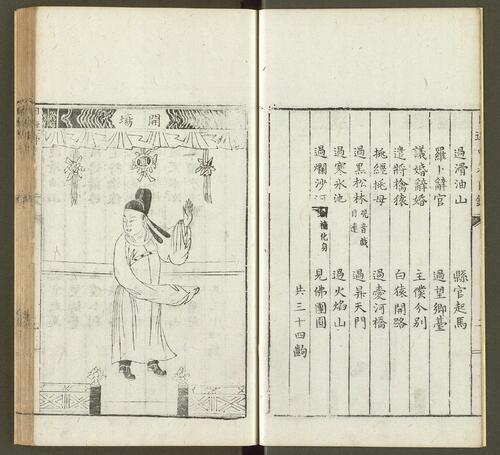 過滑油山　縣官起馬
羅卜辭官　過望鄉臺
議婚辭婚　主僕分別
遣將擒猿　白猿開路
挑經挑母　過河橋
過黑松林　觀音戲目連　過昇天門
過寒氷池　過火焰山
過爛沙河　化身　見佛團圓
共三十四齣
開場